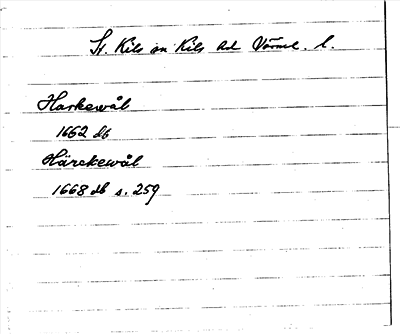 St. Kils sn Kils hd Värml. l.
Harkewål
1662 db
Härckewål
1668 db s. 259